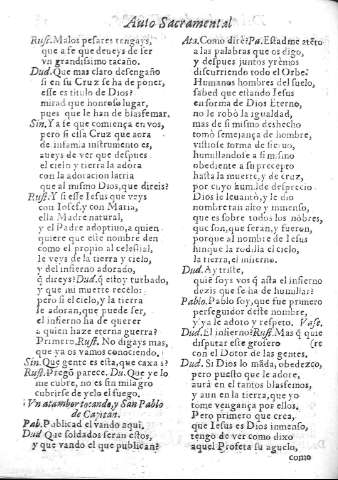 Auto Sacramental
Rust. Malos pesares tengays,
que a fe que deueys de ser
vn grandissimo tacaño.
Dud. Que mas claro desengaño
si en su Cruz se ha de poner,
esse es titulo de Dios?
mirad que honroso lugar,
pues que le han de blasfemar.
Sin. Ya se que comiença en vos,
pero si essa Cruz que aora
de infamia instrumento es,
aueys de ver que despues
el cielo y tierra la adora
con la adoracion latria
que al mismo Dios, que direis?
Rust. Y si esse Iesus que veys
con Iosef, y con Maria,
ella Madre natural,
y el Padre adoptiuo, a quien
quiere que este nombre den
como el propio al celestial,
le veys de la tierra y cielo,
y del infierno adorado,
q̃ direys? Dud. q̃ estoy turbado,
y que mi muerte recelo:
pero si el cielo, y la tierra
le adoran, que puede ser,
el infierno ha de querer
a quien haze eterna guerra?
Primero. Rust. No digays mas,
que ya os vamos conociendo,
Sin. Que gente es esta, que caxas?
Rust. Pregõ parece. Du. Que yelo
me cubre, no es sin milagro
cubrirse de yelo el fuego.
Vn atambor tocando, y San Pablo
de Capitan.
Pab. Publicad el vando aqui.
Dud. Que soldados seran estos,
y que vando el que publican?
Ata. Como dirè? Pa. Estadme atẽto
a las palabras que os digo,
y despues juntos yremos
discurriendo todo el Orbe.
Humanos hombres del suelo,
sabed que estando Iesus
en forma de Dios Eterno,
no le robò la igualdad,
mas de si mismo deshecho
tomò semejança de hombre,
vistiose forma de sieruo,
humillandose a si mismo
obediente a su precepto
hasta la muerte, y de cruz,
por cuyo humilde desprecio
Dios le leuantò, y le dio
nombre tan alto y inmenso,
que es sobre todos los nõbres,
que son, que seran, y fueron,
porque al nombre de Iesus
hinque la rodilla el cielo,
la tierra, el infierno.
Dud. Ay triste,
quiẽ soys vos q̃ asta el infierno
dezis que se ha de humillar?
Pablo. Pablo soy, que fue primero
perseguidor deste nombre,
y ya le adoto y respeto. Vase.
Dud. El infierno? Rust. Mas q̃ quie
disputar este grosero (re
con el Dotor de las gentes.
Dud. Si Dios lo mãda, obedezco,
pero puesto que le adore,
aurà en el tantos blasfemos,
y aun en la tierra, que yo
tome vengança por ellos.
Pero primero que crea,
que Iesus es Dios inmenso,
tengo de ver como dixo
aquel Profeta su aguelo,
como